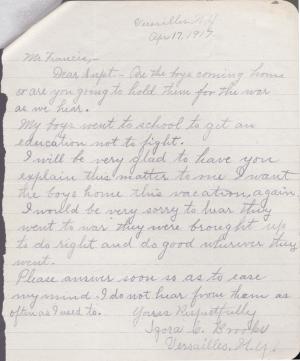 Versailles, N.Y.
Apr 17, 1917.
Mr. Francis,-
Dear Supt.- Are the boys coming home
or are you going to hold them for the war
as we hear.
My boys went to school to get an
education not to fight.
I will be very glad to have you
explain this matter to me I want
the boys home this vacation, again.
I would be very sorry to hear they
went to war they were brought up
to do right and do good wherever they
went.
Please answer soon so as to ease
my mind. I do not hear from them as
often as I used to. Yours Respectfully
C. Brooks
Versailles, N.Y.